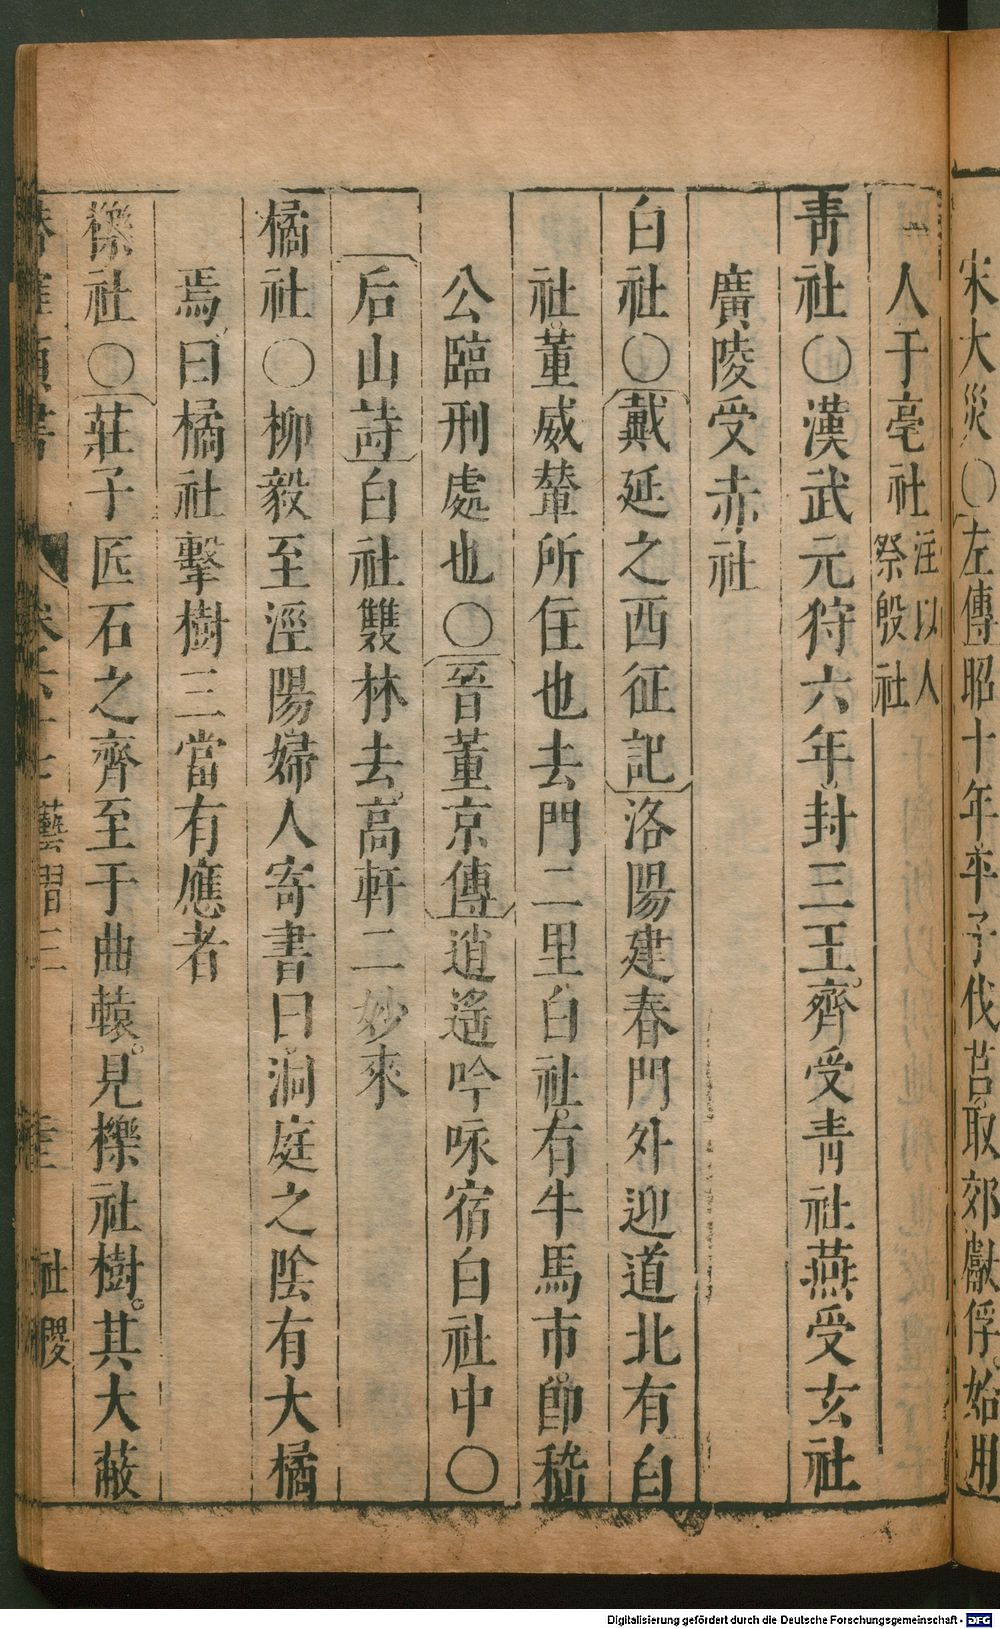 宋大災〇左傳昭十年平子伐莒取郊獻俘始用
人于亳社注以人祭殷社
青社〇漢武元狩六年封三王齊受青社燕受玄社
廣陵受赤社
白社〇戴延之西征記洛陽建春門外迎道北有白
社董威輦所住也去門二里白社有牛馬市卽嵇
公臨刑處也〇晉董京傳逍遙吟咏宿白社中〇
后山詩白社雙林去高軒二妙來
橘社〇柳毅至涇陽婦人寄書曰洞庭之陰有大橘
焉曰橘社擊樹三當有應者
櫟社〇莊子匠石之齊至于曲轅見櫟社樹其大蔽
類書 卷 藝習三 社稷
Digitalisierung gefördert durch die Deutsche Forschungsgemeinschaft - DFG